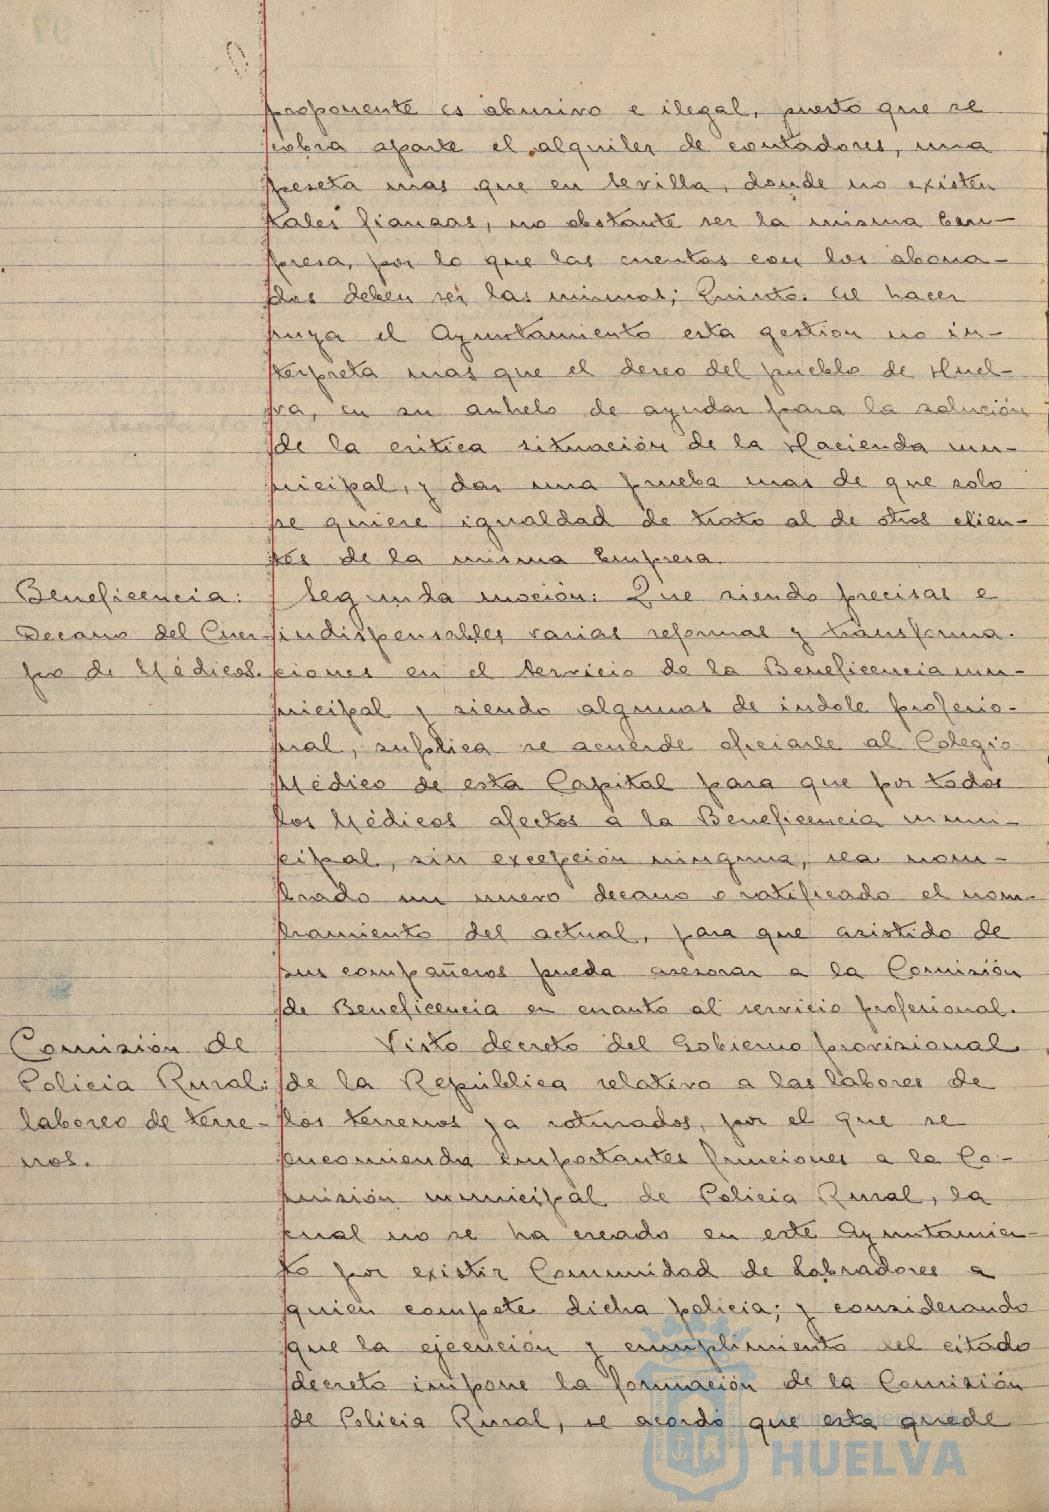 proponente es abusivo e ilegal, puesto que se
cobra aparte el alquiler de contadores, una
peseta mas que en Sevilla, donde no existen
tales fianzas, no obstante ser la misma Em-
presa, por lo que las cuentas con los abona-
dos deben ser las mismas; Quinto. Al hacer
suya el Ayuntamiento esta gestion no in-
terpreta mas que el deseo del pueblo de Huel-
va, en su anhelo de ayudar para la solución
de la critica situación de la Hacienda mu-
nicipal, y dar una prueba mas de que solo
se quiere igualdad de trato al de otros clien-
tes de la misma Empresa.
Beneficencia:
Decano del Cuer-
po de Médicos.
Segunda moción: Que siendo precisas e
indispensables varias reformas y transforma-
ciones en el Servicio de la Beneficencia mu-
nicipal y siendo algunas de indole profesio-
nal, suplica se acuerde oficiarle al Colegio
Médico de esta Capital para que por todos
los Médicos afectos a la Beneficencia muni-
cipal, sin excepción ninguna, sea nom-
brado un nuevo decano o ratificado el nom-
bramiento del actual, para que asistido de
sus compañeros pueda asesorar a la Comisión
de Beneficencia en cuanto al servicio profesional.
Comisión de
Policia Rural:
laboreo de terre-
nos.
Visto decreto del Gobierno provisional
de la República relativo a las labores de
los terrenos ya roturados, por el que se
encomienda importantes funciones a la Co-
misión municipal de Policia Rural, la
cual no se ha creado en este Ayuntamien-
to por existir Comunidad de Labradores a
quien compete dicha policia; y considerando
que la ejecución y cumplimiento del citado
decreto impone la formación de la Comisión
de Policia Rural, se acordó que esta quede
Ayuntamiento de
HUELVA